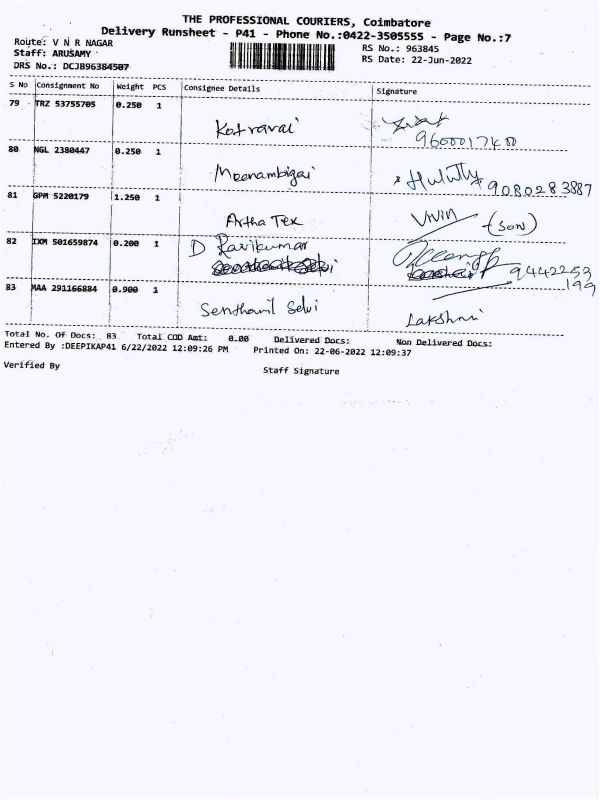 THE PROFESSIONAL COURIERS, Coimbatore
Delivery Runsheet - P41 - Phone No.:0422-3505555 - Page No.:7
Route: V N R NAGAR
RS No.: 963845
Staff: ARUSAMY
RS Date: 22-Jun-2022
DRS No.: DCJB96384507
S No Consignment No Weight PCS Consignee Details Signature
79 TRZ 53755705 0.250 1 Kotravai
80 NGL 2380447 0.250 1 Meenambigai 9080283887
81 GPM 5220179 1.250 1 Artha Tex Vivin (son)
82 IXM 501659874 0.200 1 D Ravikumar 9442253
199
83 MAA 291166884 0.900 1 Senthamil Selvi Lakshmi
Total No. Of Docs: 83 Total COD Amt: 0.00 Delivered Docs: Non Delivered Docs:
Entered By :DEEPIKAP41 6/22/2022 12:09:26 PM Printed On: 22-06-2022 12:09:37
Verified By Staff Signature